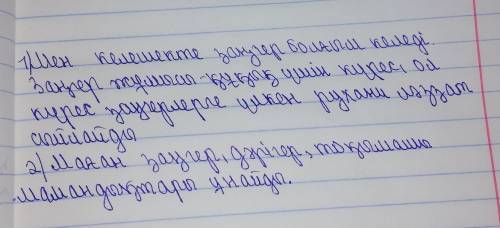 1) Мен келешекте заңгер болғым келеді.
Заңгер жұмысы - құқық үшін күрес, ол
күрес заңгерлерге үлкен рухани ләззат
сыйлайды
2) Маған заңгер, дәрігер, тоқымашы
мамандықтары ұнайды.